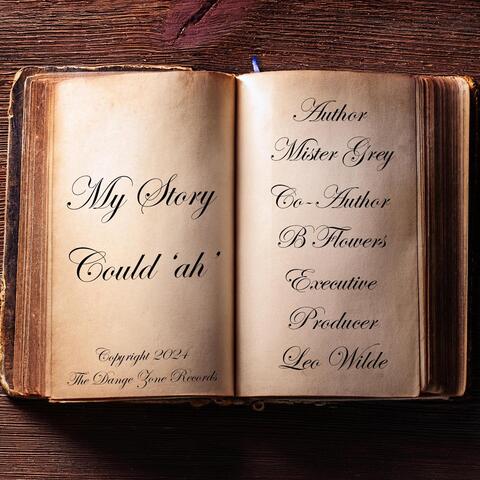 My Story
Could 'ah'
Copyright 2024
The Dange Zone Records
Author
Mister Grey
Co-Author
B Flowers
Executive
Producer
Leo Wilde